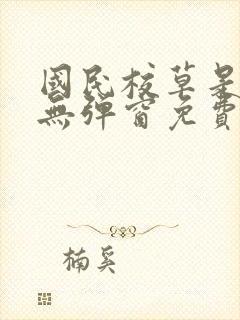 國民校草是
無彈窗免費
楠奚